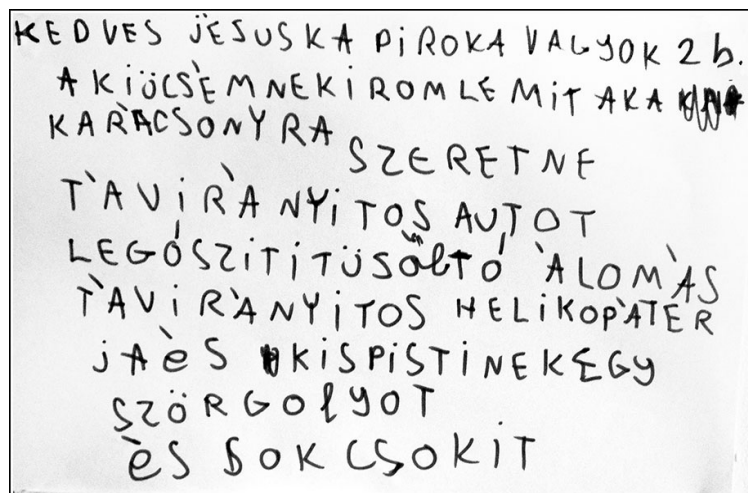 KEDVES JESUSKA PiROKA VAGYOK 2 b.
A KiÖCSÈMNEKiROMLE MiT AKA
KARÀCSONYRA
SZERETNE
TÀViRÀNYiTOS AUTOT
LEGÓSZiTiTÜSÖltÓ ÀLOMÀS
TÀViRÀNYiTOS HELiKOPÀTER
jAèS KiSPiSTiNEKEGY
SZÖRGOlYOT
èS SOKCSOKiT